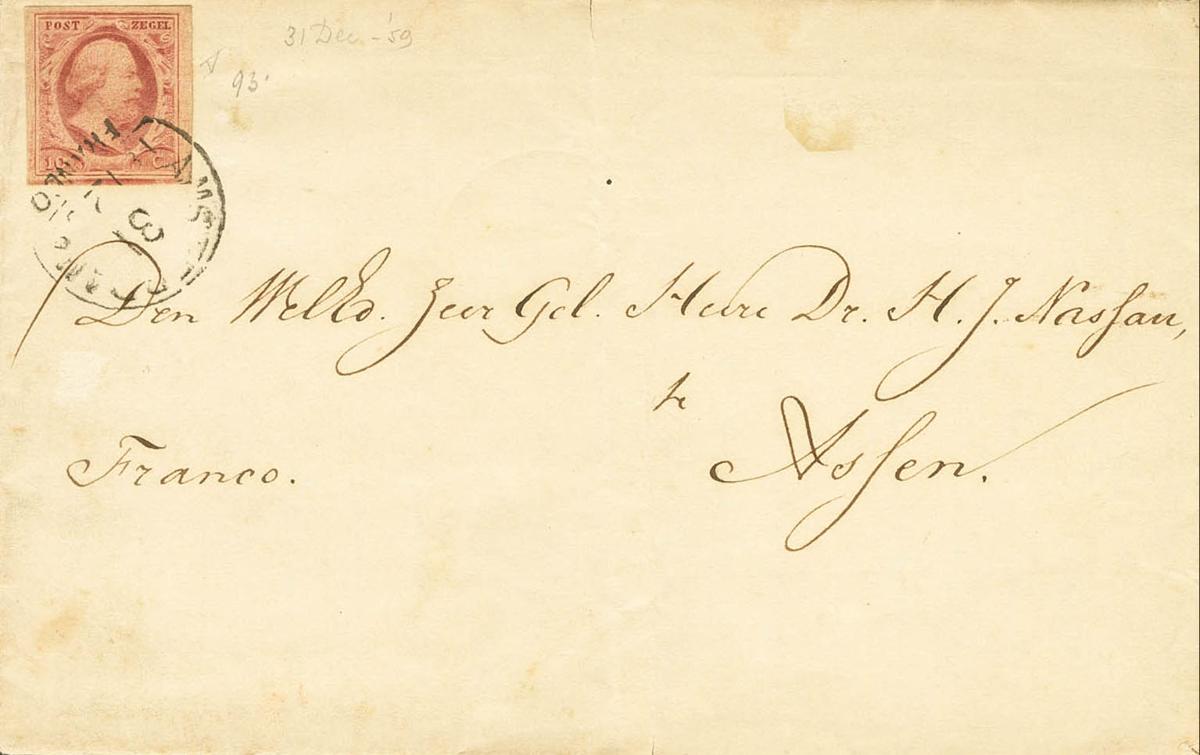 POST ZEGEL
31 Dec - '59
93.
10 C
AMSTERDAM
FRANCO
Den WelEd. Zeer Gel. Heere Dr. H. J. Nassau,
te
Assen.
Franco.